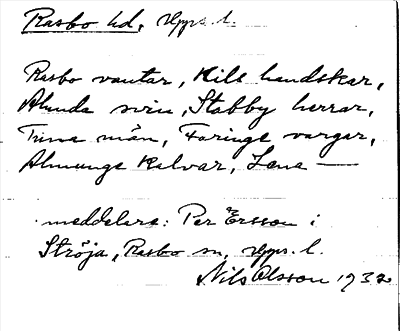 Rasbo hd, Upps. l.
Rasbo vantar, Kils handskar,
Alunda svin, Stabby herrar,
Tuna män, Faringe vargar,
Almunge Kalvar, Lena —
meddelare: Per Ersson i
Ströja, Rasbo sn, Upps. l.
Nils Olsson 1932